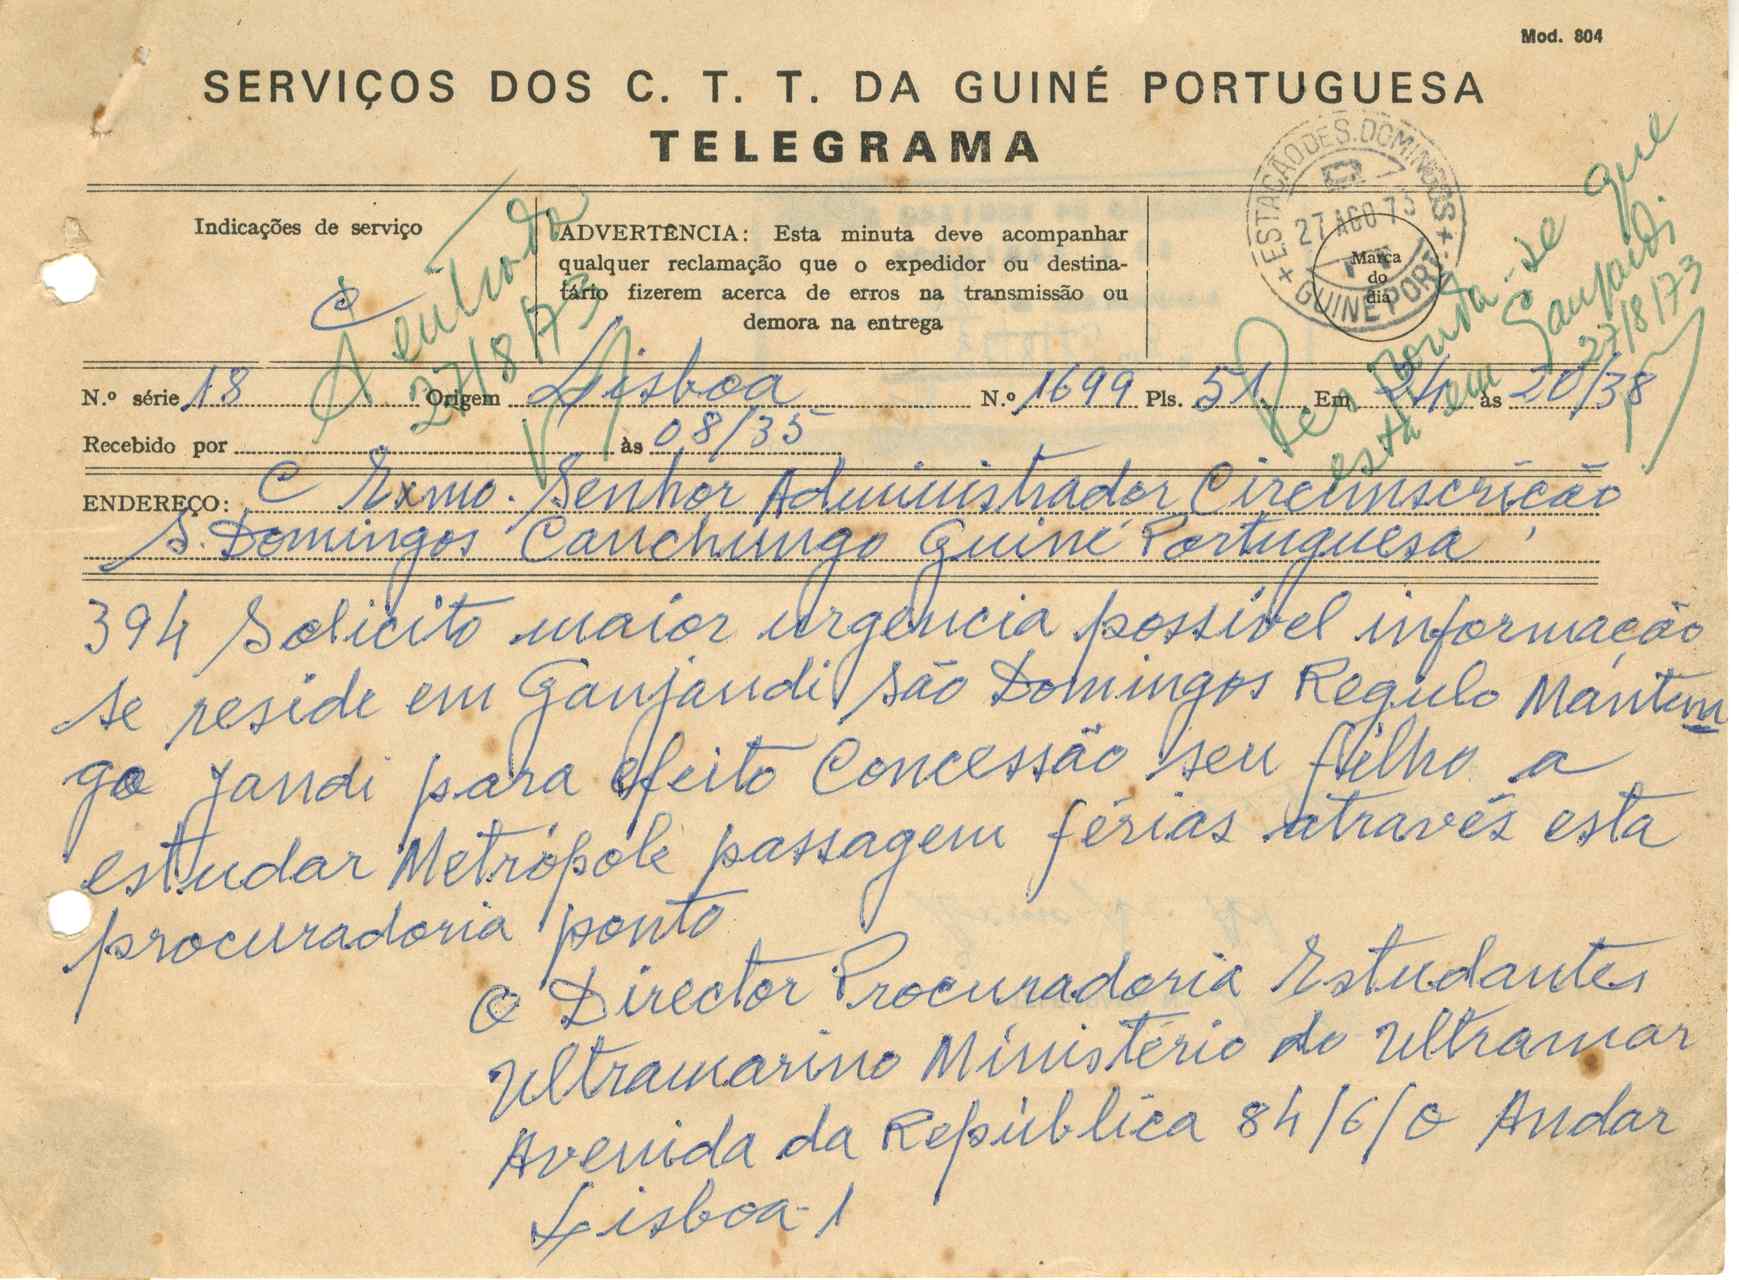 Mod. 804
SERVIÇOS DOS C. T. T. DA GUINÉ PORTUGUESA
TELEGRAMA
Indicações de serviço
ADVERTÊNCIA: Esta minuta deve acompanhar
qualquer reclamação que o expedidor ou destina-
tário fizerem acerca de erros na transmissão ou
demora na entrega
ESTAÇÃO DE S. DOMINGOS
27 AGO 73
GUINÉ PORT.
Marca
do
dia
À entrada
27/8/73
Responda-se que
está em Ganjandi
27/8/73
N.º série 18 Origem Lisboa N.º 1699 Pls. 51 Em 24 às 20/38
Recebido por às 08/35
ENDEREÇO: C Exmo. Senhor Administrador Circunscrição
S. Domingos Canchungo Guiné Portuguesa
394 Solicito maior urgencia possível informação
se reside em Ganjandi São Domingos Regulo Mantun
go Jandi para efeito Concessão seu filho a
estudar Metrópole passagem férias através esta
procuradoria ponto
O Director Procuradoria Estudantes
Ultramarino Ministério do Ultramar
Avenida da República 84/6/O Andar
Lisboa-1